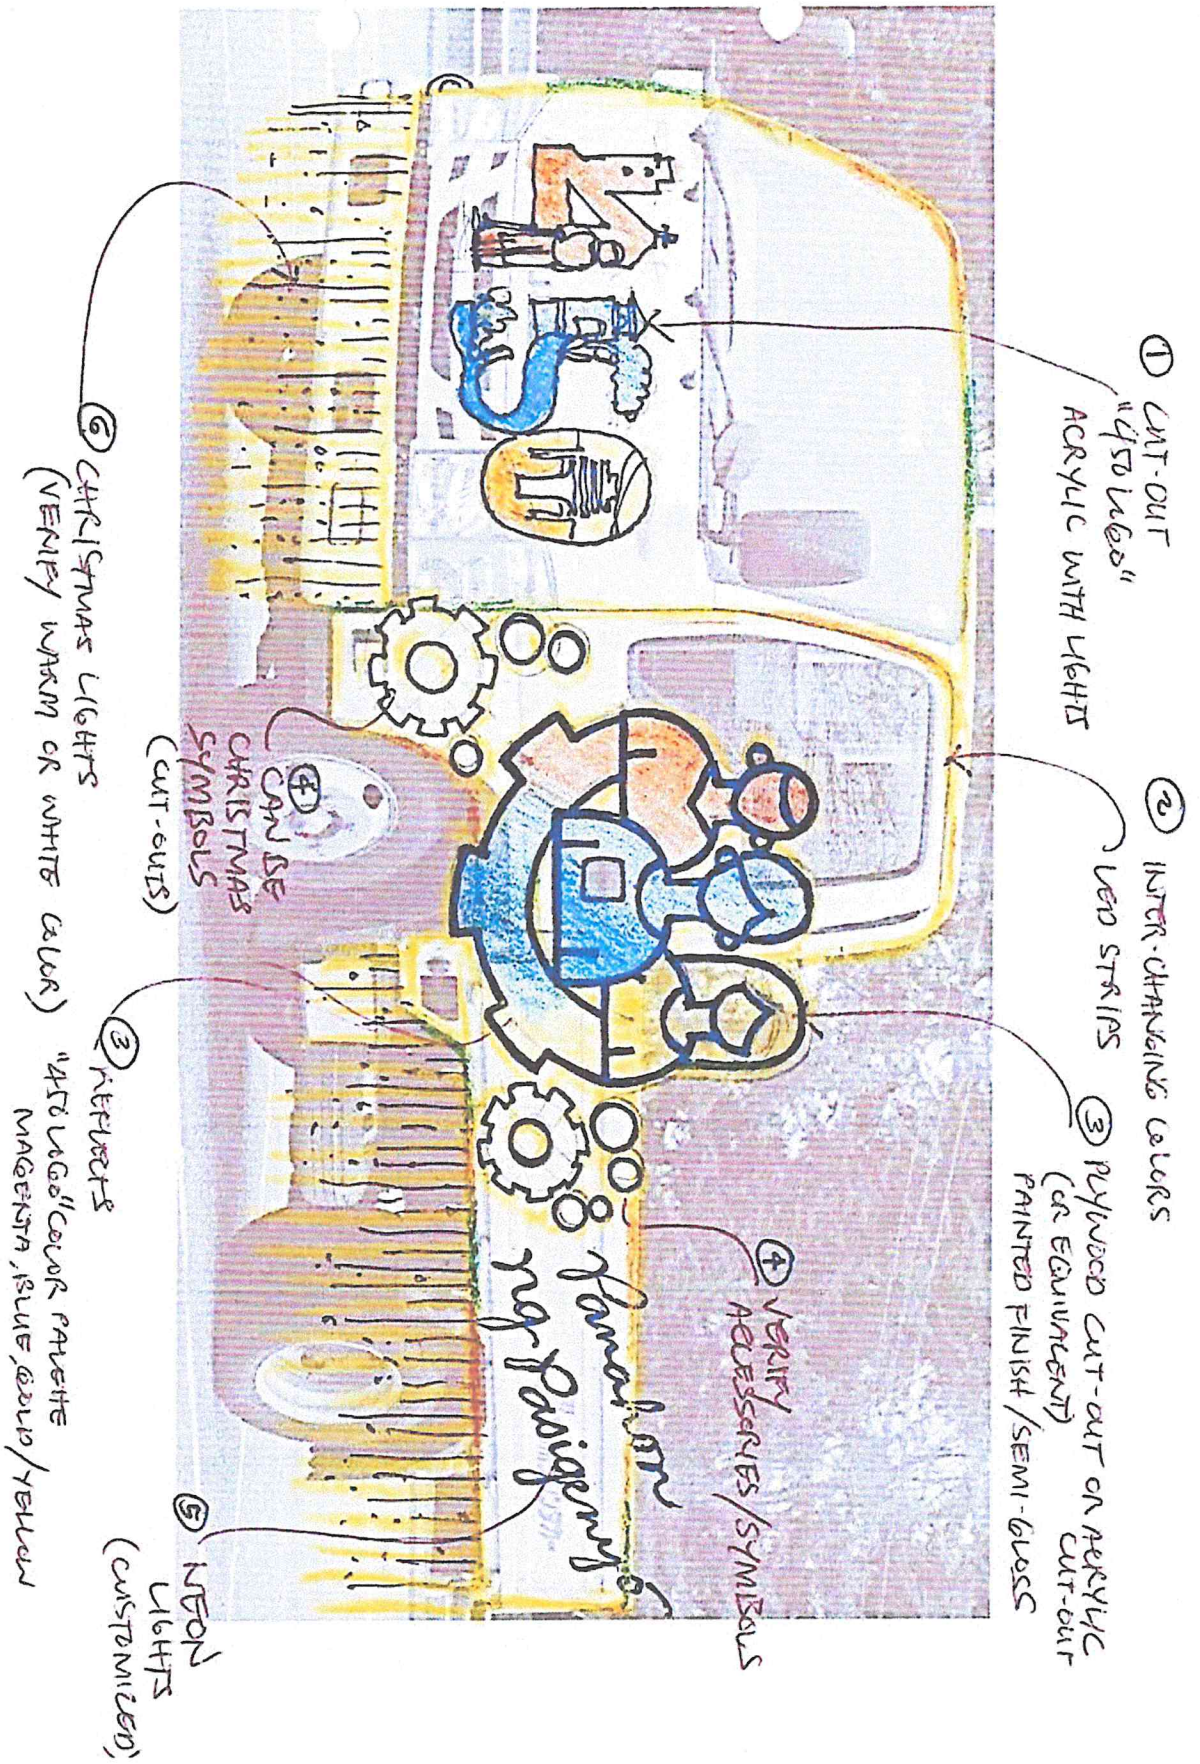 ① CUT-OUT
"450 LOGO"
ACRYLIC WITH LIGHTS
② INTER-CHANGING COLORS
LED STRIPS
③ PLYWOOD CUT-OUT OR ACRYLIC
(OR EQUIVALENT) CUT-OUT
PAINTED FINISH/SEMI-GLOSS
450
④ VERIFY
ACCESSORIES/SYMBOLS
ng Pasigenyo
④
CAN BE
CHRISTMAS
SYMBOLS
(CUT-OUTS)
⑥ CHRISTMAS LIGHTS
(VERIFY WARM OR WHITE COLOR)
③ REFLECTS
"450 LOGO" COLOR PALETTE
MAGENTA, BLUE, GOLD/YELLOW
⑤ NEON
LIGHTS
(CUSTOMIZED)